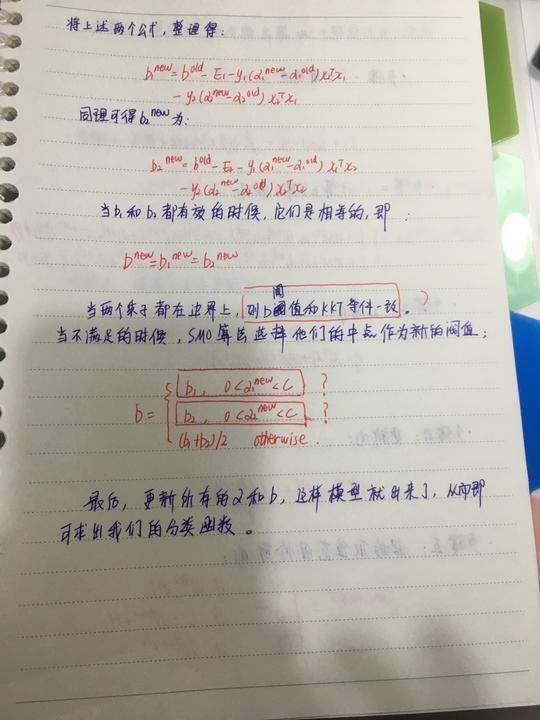 将上述两个公式，整理得：
b₁ⁿᵉʷ = bᵒˡᵈ - E₁ - y₁(α₁ⁿᵉʷ - α₁ᵒˡᵈ) x₁ᵀx₁
- y₂(α₂ⁿᵉʷ - α₂ᵒˡᵈ) x₂ᵀx₁
同理可得 b₂ⁿᵉʷ 为：
b₂ⁿᵉʷ = bᵒˡᵈ - E₂ - y₁(α₁ⁿᵉʷ - α₁ᵒˡᵈ) x₁ᵀx₂
- y₂(α₂ⁿᵉʷ - α₂ᵒˡᵈ) x₂ᵀx₂
当b₁和b₂都有效的时候，它们是相等的，即：
bⁿᵉʷ = b₁ⁿᵉʷ = b₂ⁿᵉʷ
当两个乘子都在边界上，则b阈值和KKT条件一致。？
当不满足的时候，SMO算法选择他们的中点作为新的阈值：
b₁, 0<α₁ⁿᵉʷ<C ?
b = { b₂, 0<α₂ⁿᵉʷ<C ?
(b₁+b₂)/2 otherwise.
最后，更新所有的α和b，这样模型就出来了，从而即
可求出我们的分类函数。